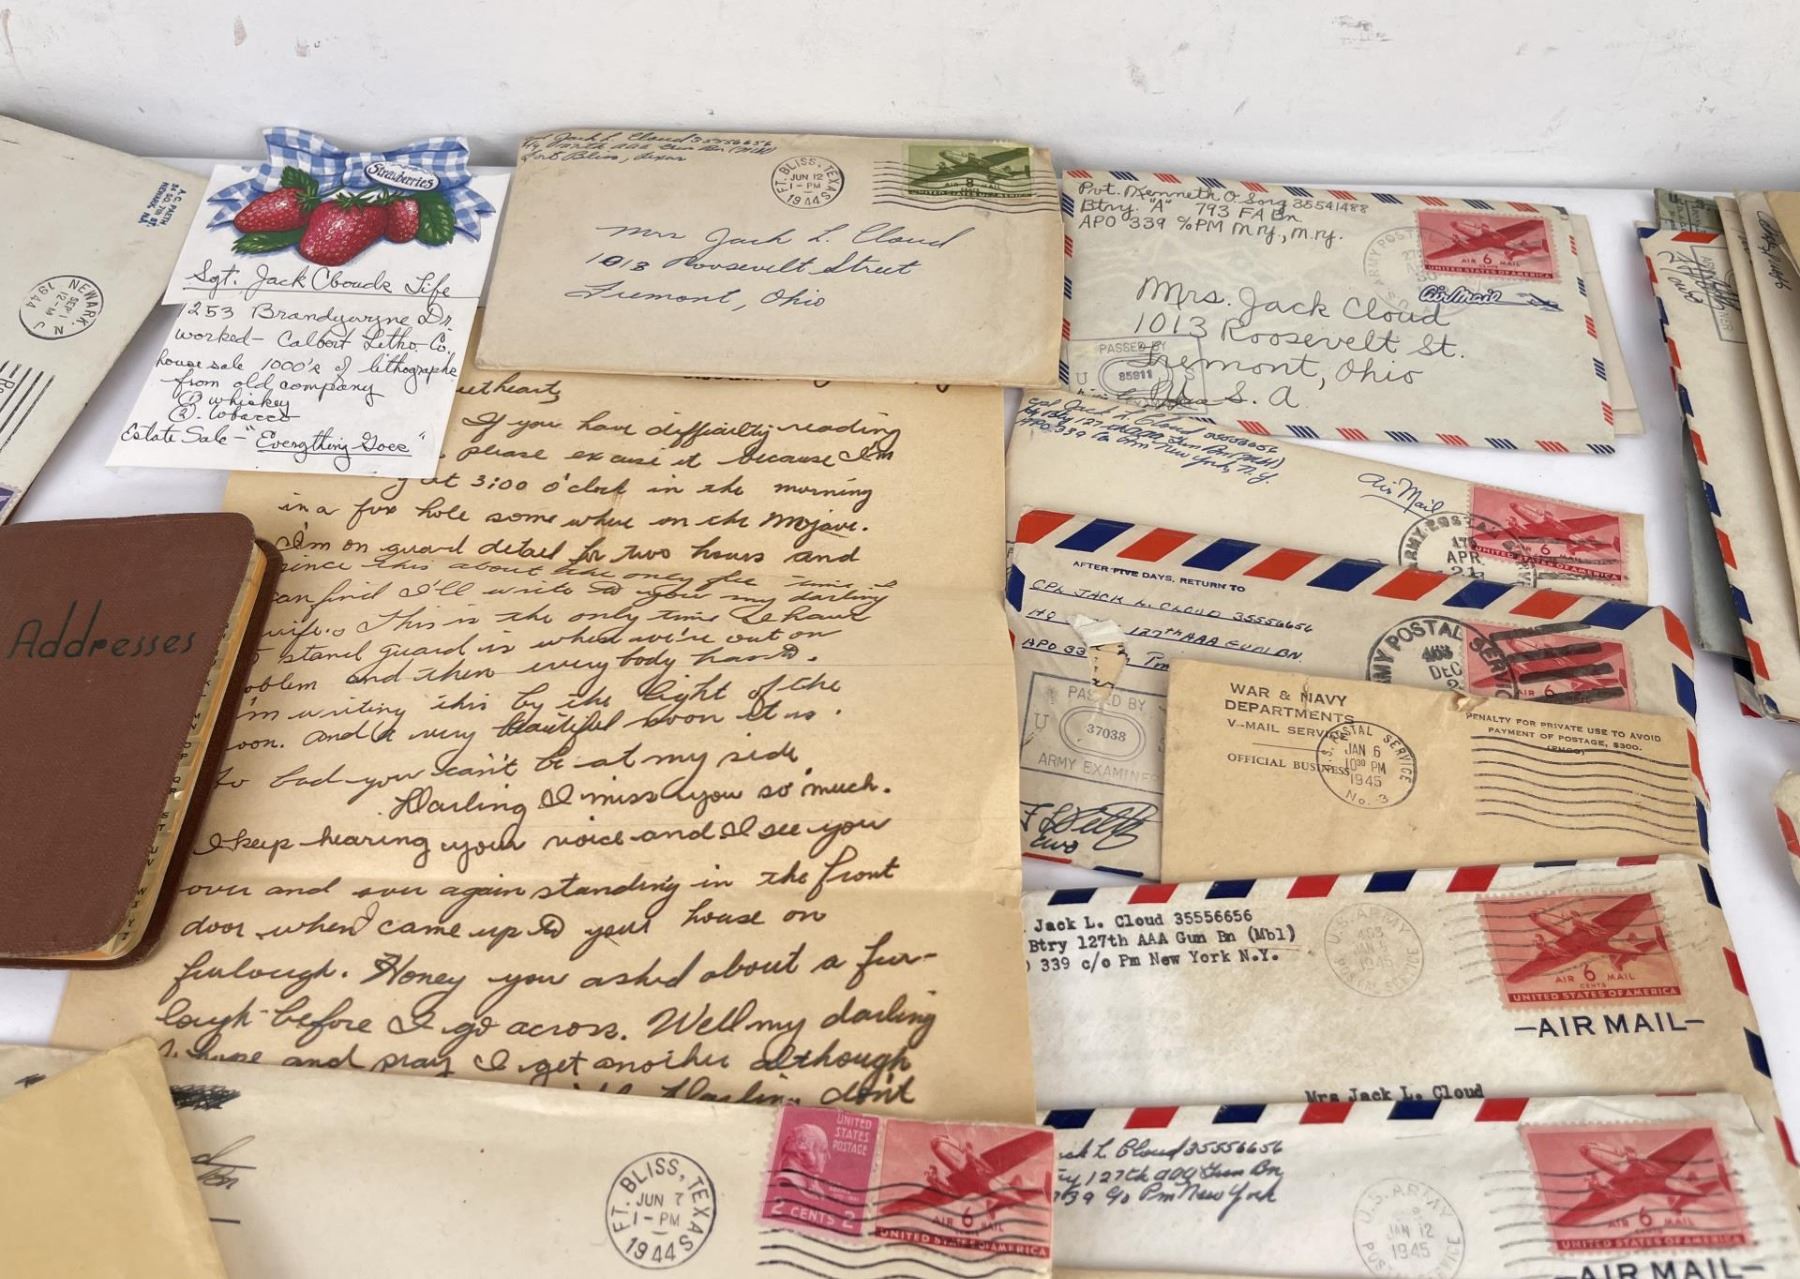 A.C. PAETH
NEWARK, N.J.
NEWARK, N.J.
SEP 1
12-M
1944
Strawberries
Sgt. Jack Clouds Life
1253 Brandywyne Dr.
worked- Calbert Litho. Co.
house sale 1000's of lithographs
from old company
① whiskey
②. tobacco
Estate Sale - "Everything Goes"
Addresses
Jack L. Cloud 35556656
Fort Bliss, Texas
FT. BLISS, TEXAS
JUN 12
1-PM
1944
8
AIR MAIL
UNITED STATES OF AMERICA
Mrs Jack L. Cloud
1013 Roosevelt Street
Fremont, Ohio
If you have difficulty reading
please excuse it because I'm
at 3:00 o'clock in the morning
in a fox hole some where on the Mojave.
I'm on guard detail for two hours and
since this about the only free time I
can find I'll write to you my darling
wife. This is the only time I have
stand guard is when we're out on
problem and then every body has to.
I'm writing this by the light of the
moon. And a very beautiful moon it is.
To bad you can't be at my side
Darling I miss you so much.
I keep hearing your voice and I see you
over and over again standing in the front
door when I came up to your house on
furlough. Honey you asked about a fur-
lough before I go across. Well my darling
I hope and pray I get another although
Darling don't
FT. BLISS, TEXAS
JUN 7
1-PM
1944
UNITED
STATES
POSTAGE
2 CENTS 2
AIR 6 MAIL
UNITED STATES OF AMERICA
Pvt. Kenneth O Song 35541488
Btry. "A" 793 FA Bn
APO 339 %PM N.Y., N.Y.
AIR 6 MAIL
UNITED STATES OF AMERICA
Air Mail
Mrs. Jack Cloud
1013 Roosevelt St.
Fremont, Ohio
U. S. A.
PASSED BY
85911
Cpl Jack L. Cloud 35556656
Hq Btry 127th AAA Gun Bn (Mbl)
APO 339 New York, N.Y.
Air Mail
ARMY POSTAL
APR
21
6
UNITED STATES OF AMERICA
AFTER FIVE DAYS, RETURN TO
CPL JACK L. CLOUD 35556656
HQ 127th AAA GUN BN.
APO 33
PASSED BY
U
37038
ARMY EXAMINER
CWO
ARMY POSTAL SERVICE
DEC
AIR 6
WAR & NAVY
DEPARTMENTS
V-MAIL SERVICE
OFFICIAL BUSINESS
U.S. POSTAL SERVICE
JAN 6
10³⁰ PM
1945
No. 3
PENALTY FOR PRIVATE USE TO AVOID
PAYMENT OF POSTAGE, $300.
(PMGO)
Jack L. Cloud 35556656
Btry 127th AAA Gun Bn (Mbl)
339 c/o Pm New York N.Y.
U.S. ARMY
JAN
1945
AIR 6 MAIL
CENTS
UNITED STATES OF AMERICA
—AIR MAIL—
Mrs Jack L. Cloud
Jack L Cloud 35556656
127th AAA Gun Bn
339 c/o Pm New York
U.S. ARMY
JAN 12
1945
AIR 6 MAIL
UNITED STATES OF AMERICA
AIR MAIL